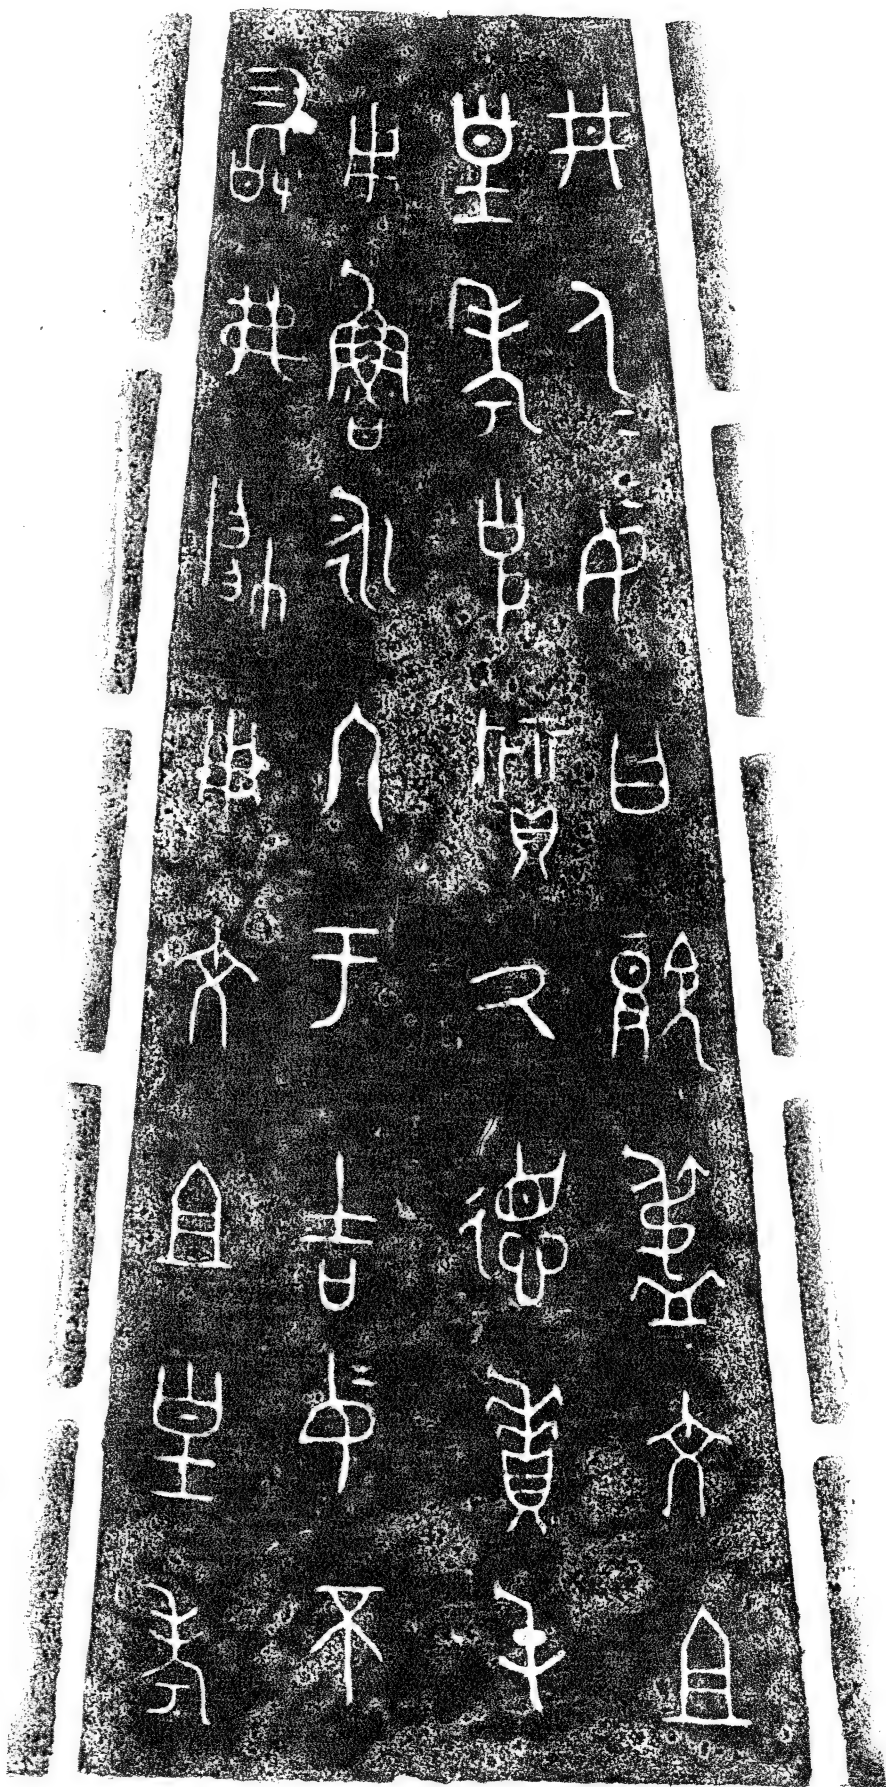 井人妄曰顯盄文且
皇考克質氒德賁屯
用魯永冬于吉妄不
敢弗帥用文且皇考